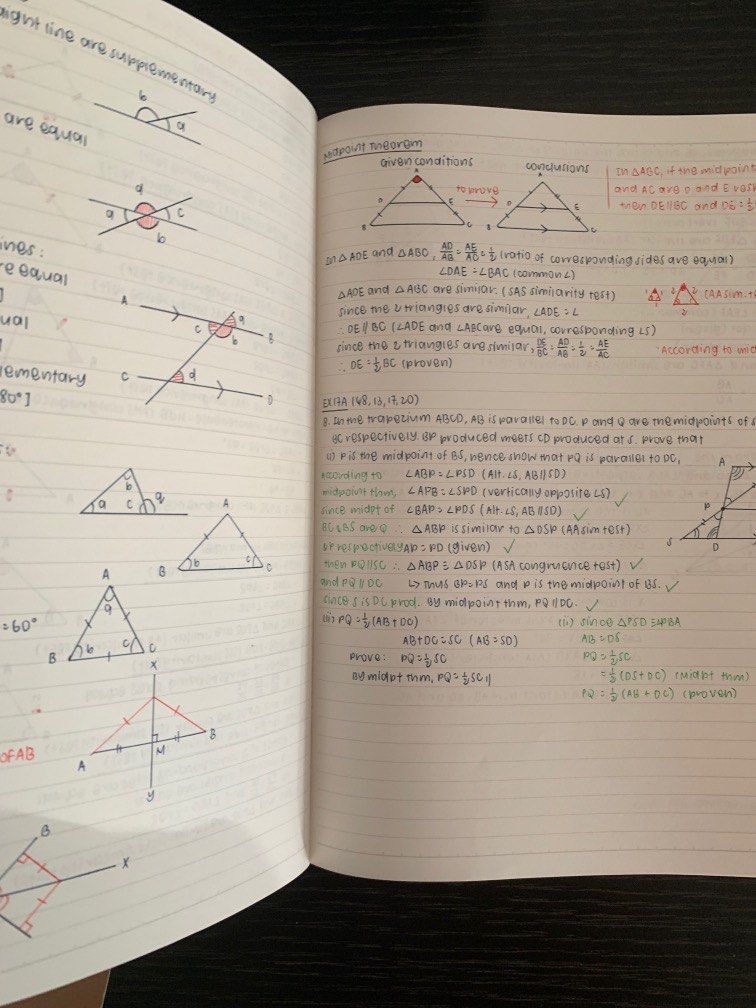 aight line are supplementary
b
a
are equal
d
a
c
b
ines:
re equal
A
a
c
b
B
ual
C
d
D
lementary
80°]
b
a
c
d
A
B
b
c
C
A
a
=60°
B
b
c
C
X
OF AB
A
M
B
Y
B
X
Midpoint Theorem
Given conditions
conclusions
A
D
E
B
C
to prove
A
D
E
B
C
In △ABC, if the midpoint
and AC are D and E resp
then DE//BC and DE = 1/2
In △ADE and △ABC, AD/AB = AE/AC = 1/2 (ratio of corresponding sides are equal)
∠DAE = ∠BAC (common ∠)
△ADE and △ABC are similar. (SAS similarity test)
1
1
2
2
2
(AA sim. t
since the 2 triangles are similar, ∠ADE = ∠
∴ DE // BC (∠ADE and ∠ABC are equal, corresponding ∠s)
since the 2 triangles are similar, DE/BC = AD/AB = 1/2 = AE/AC
"According to mid
∴ DE = 1/2 BC (proven)
EX 17A (4,8, 13, 17, 20)
8. In the trapezium ABCD, AB is parallel to DC. P and Q are the midpoints of
BC respectively. BP produced meets CD produced at S. prove that
(i) P is the midpoint of BS, hence show that PQ is parallel to DC,
According to ∠ABP = ∠PSD (Alt. ∠s, AB//SD)
midpoint thm, ∠APB = ∠SPD (vertically opposite ∠s) ✓
since midpt of ∠BAP = ∠PDS (Alt. ∠s, AB//SD) ✓
BC & BS are Q ∴ △ABP is similar to △DSP (AA sim test)
& P respectively AP = PD (given) ✓
then PQ//SC ∴ △ABP ≡ △DSP (ASA congruence test) ✓
and PQ // DC ↳ Thus BP = PS and P is the midpoint of BS. ✓
since S is DC prod. By midpoint thm, PQ // DC. ✓
A
P
S
D
(ii) PQ = 1/2 (AB + DC)
AB + DC = SC (AB = SD)
prove: PQ = 1/2 SC
By midpt thm, PQ = 1/2 SC //
(ii) since △PSD ≡ △PBA
AB = DS
PQ = 1/2 SC
= 1/2 (DS + DC) (midpt thm)
PQ = 1/2 (AB + DC) (proven)